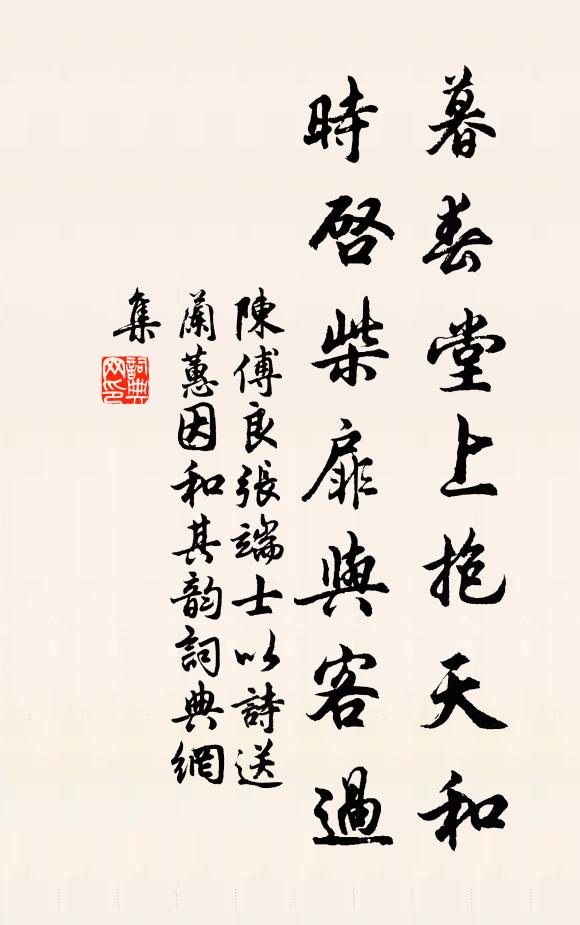 暮春堂上抱天和
時啓柴扉與客過
陳傅良張端士以詩送
蘭蕙因和其韵詞典網
集
詞典
网印